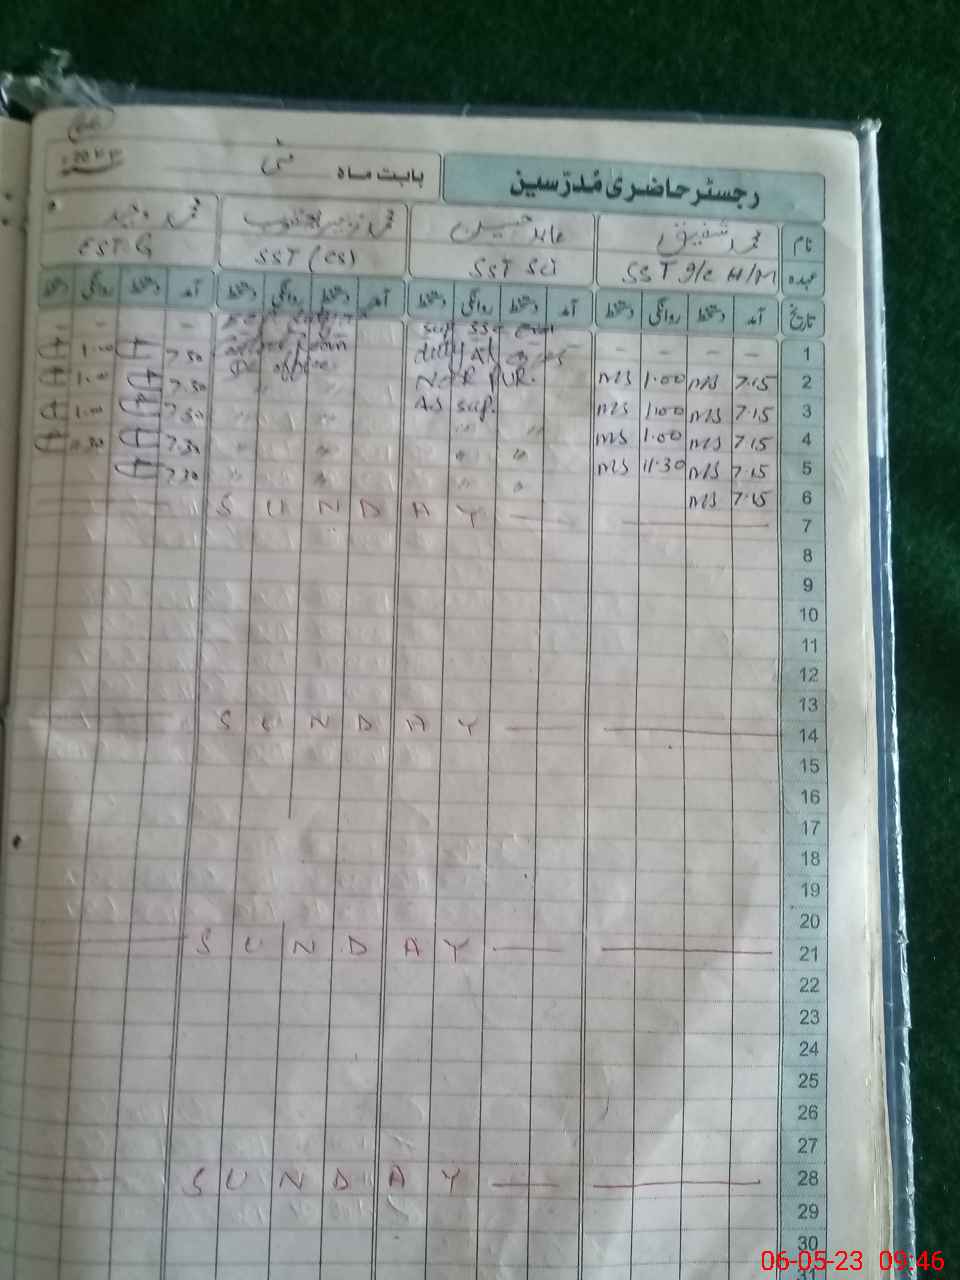 رجسٹر حاضری مُدرّسین
بابت ماہ مئی
نام محمد شفیق عابد حسین محمد
عہدہ SST I/C H/M SST Sci SST (CS) EST-G
تاریخ آمد دستخط روانگی دستخط آمد دستخط روانگی دستخط آمد دستخط روانگی دستخط آمد دستخط روانگی دستخط
1 – – – –
2 7.15 MS 1.00 MS 7.30 1.00
3 7.15 MS 1.00 MS 7.30 1.00
4 7.15 MS 1.00 MS 7.30 1.00
5 7.15 MS 11.30 MS 7.30
6 7.15 MS 7.30
duty At
NOOR PUR.
AS Sup.
office
7 SUNDAY
8
9
10
11
12
13
14 SUNDAY
15
16
17
18
19
20
21 SUNDAY
22
23
24
25
26
27
28 SUNDAY
29
30
31
06-05-23 09:46